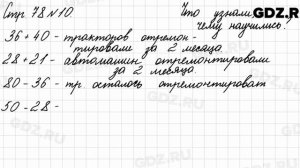 Стр 78 № 10.
Что узнали,
чему научились?
36 + 40 - тракторов отремон-
тировали за 2 месяца.
28 + 21 - автомашин отремонтировали
за 2 месяца.
80 - 36 - тр. осталось отремонтироват
50 - 28 -
GDZ.RU